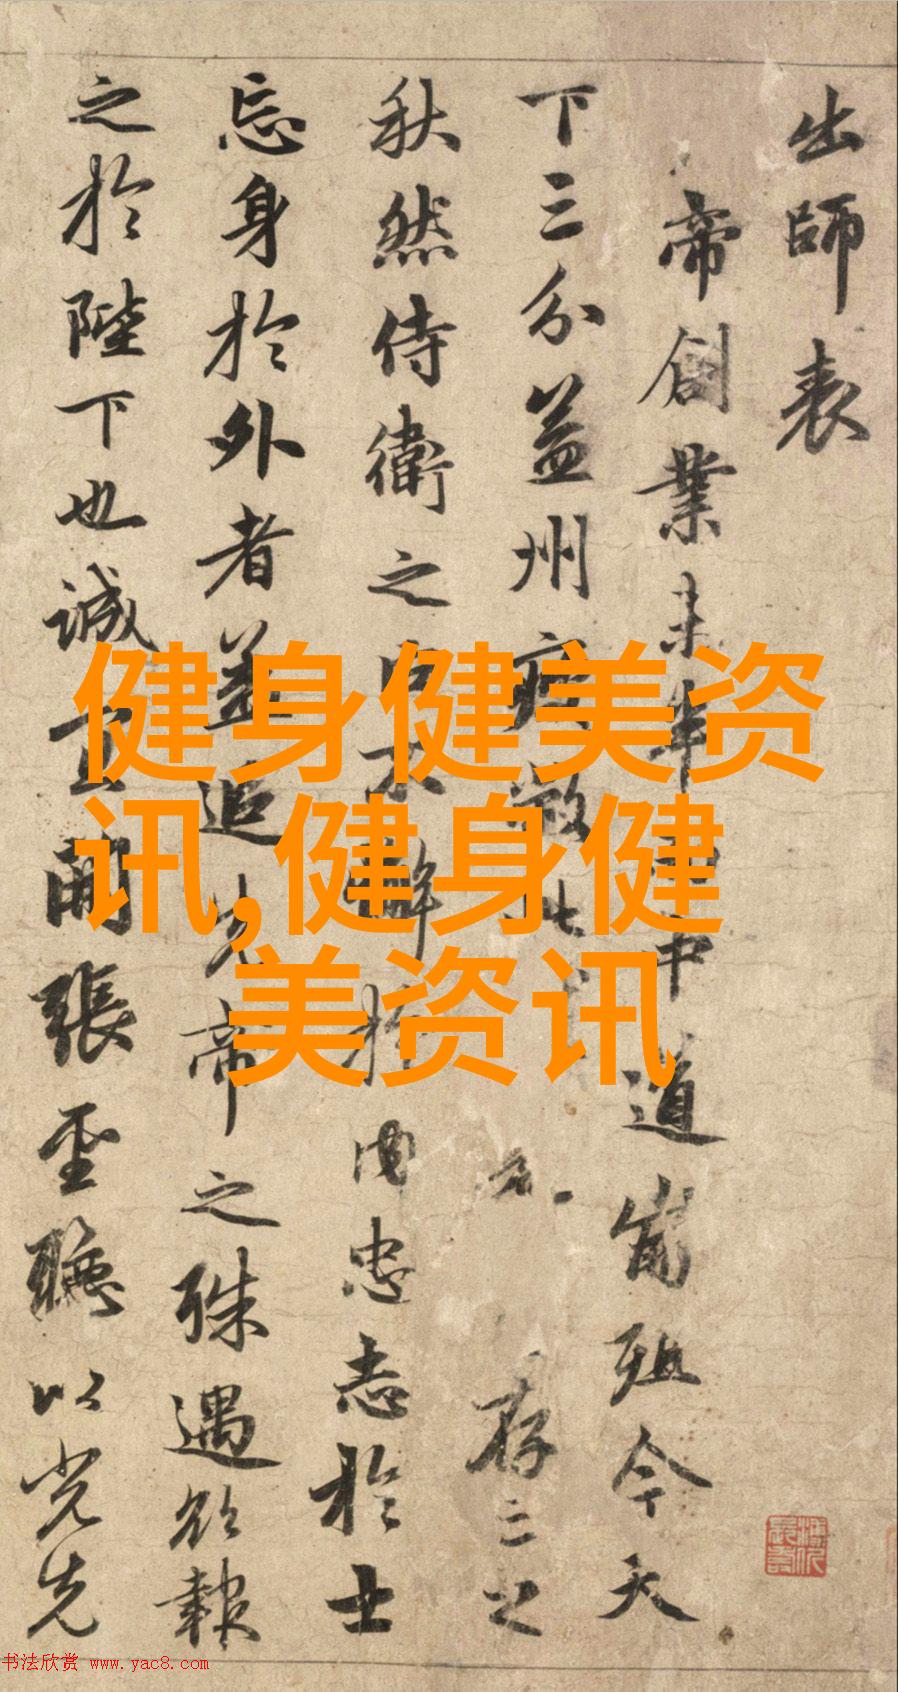 出師表
帝創業未半中道崩殂今天
下三分益州疲敝此存亡之
秋然侍衛之臣不懈於内忠志於士
忘身於外者蓋追先帝之殊遇欲報
之於陛下也誠宜開張聖聽以光先
健身健美资
讯,健身健
美资讯
书法欣赏 www.yac8.com